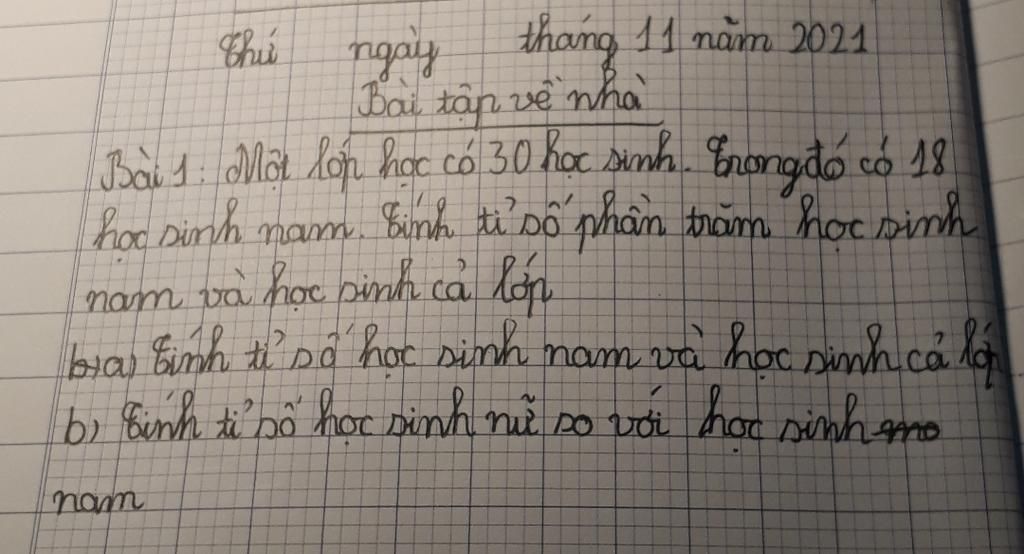 Thứ ngày tháng 11 năm 2021
Bài tập về nhà
Bài 1: Một lớp học có 30 học sinh. Trong đó có 18
học sinh nam. Tính tỉ số phần trăm học sinh
nam và học sinh cả lớp
a) Tính tỉ số học sinh nam và học sinh cả lớp
b) Tính tỉ số học sinh nữ so với học sinh
nam